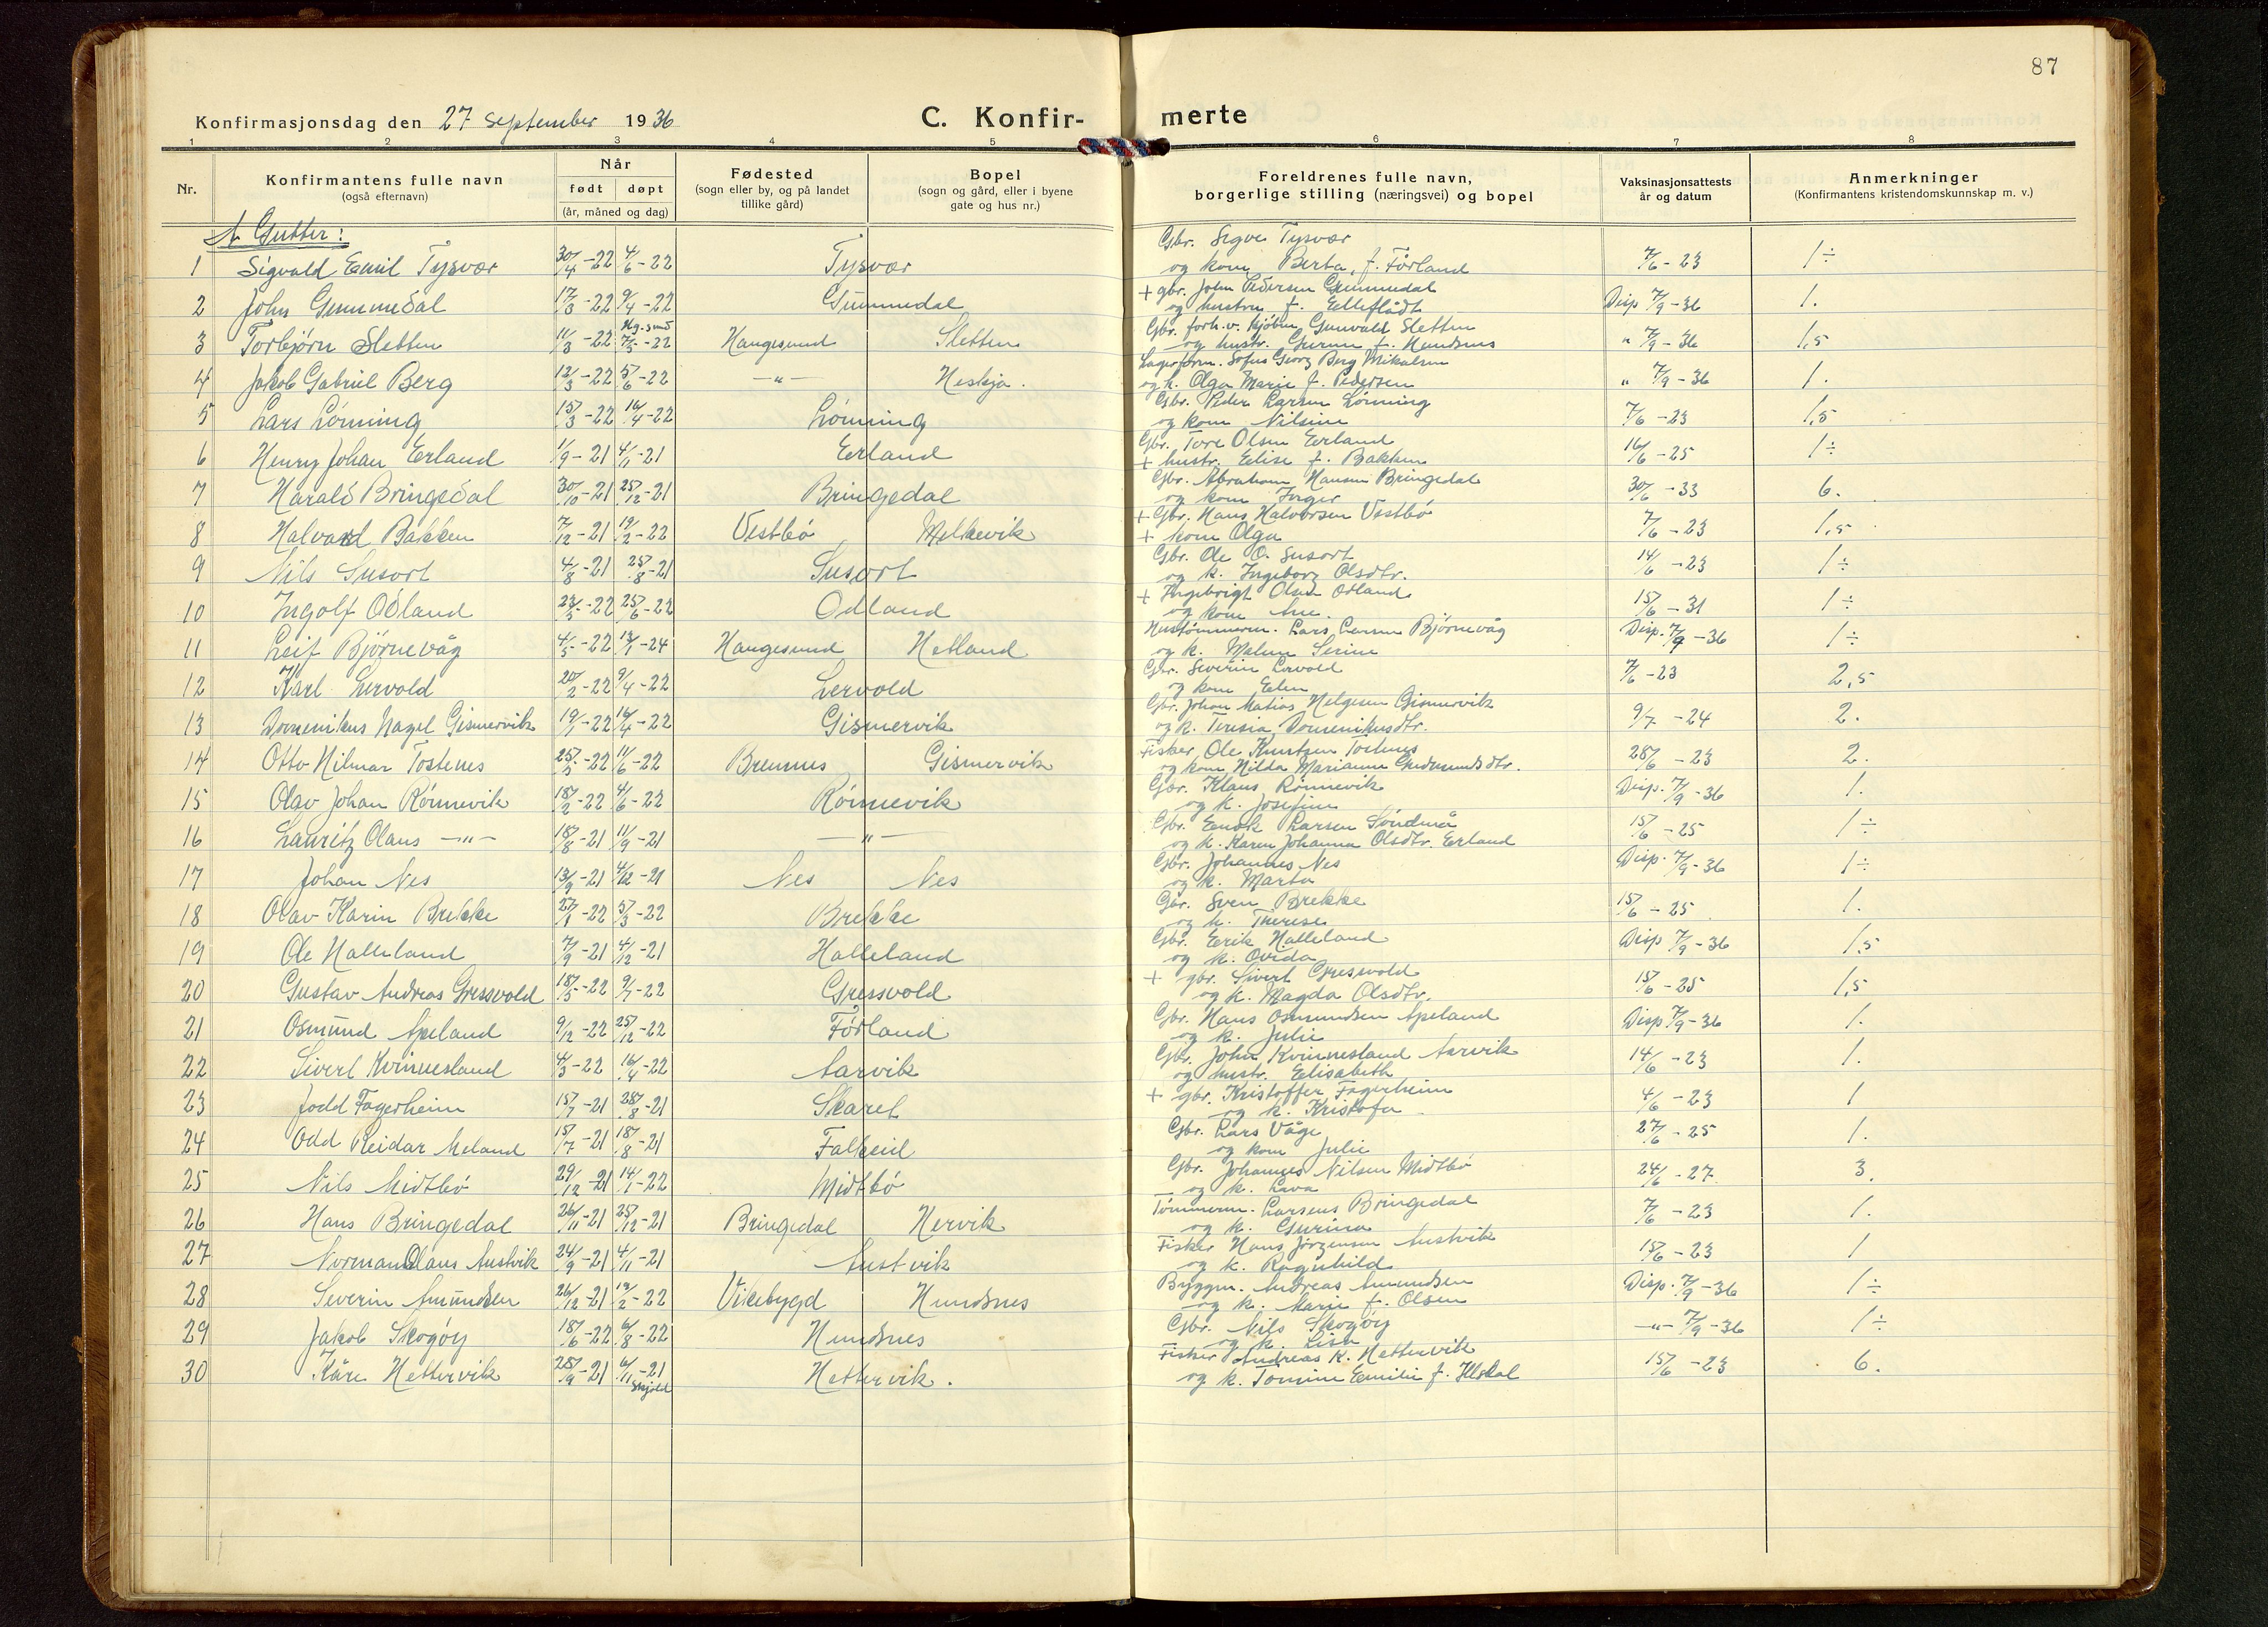 87
Konfirmasjonsdag den 27 september 1936
C. Konfir-merte
1 2 3 4 5 6 7 8
Nr.
Konfirmantens fulle navn
(også efternavn)
Når
født døpt
(år, måned og dag)
Fødested
(sogn eller by, og på landet
tillike gård)
Bopel
(sogn og gård, eller i byene
gate og hus nr.)
Foreldrenes fulle navn,
borgerlige stilling (næringsvei) og bopel
Vaksinasjonsattests
år og datum
Anmerkninger
(Konfirmantens kristendomskunnskap m. v.)
A Gutter:
1 Sigvald Emil Tysvær 30/4-22 4/6-22 Tysvær Gbr. Sigve Tysvær
og kom Berta, f. Førland 7/6-23 1÷
2 John Gummedal 17/3-22 9/4-22 Gummedal + gbr. John Pedersen Gummedal
og hustru f. Disp 7/9-36 1.
3 Torbjørn Sletten 11/3-22 Hg.sund 7/5-22 Haugesund Sletten Gbr. forh.v. kjøbm. Gunvald Sletten
og hustr. Gurine f. Hundsnes " 7/9-36 1,5
4 Jakob Gabriel Berg 12/3-22 5/6-22 -"- Heskja. Lagerform. Sofus Georg Berg Mikalsen
og h. Olga Marie f. Pedersen " 7/9-36 1.
5 Lars Lønning 15/3-22 16/4-22 Lønning Gbr. Peder Larsen Lønning
og kom Nilsine 7/6-23 1,5
6 Henry Johan Erland 1/9-21 4/11-21 Erland Gbr. Tore Olsen Erland
+ hustr. Elise f. Bakken 16/6-25 1÷
7 Harald Bringedal 30/10-21 25/12-21 Bringedal Gbr. Abraham Hansen Bringedal
og kom Inger 30/6-33 6.
8 Halvard Bakken 7/12-21 19/2-22 Vestbø Melkevik + Gbr. Hans Halvorsen Vestbø
+ kom Olga 7/6-23 1,5
9 Nils Susort 4/8-21 25/8-21 Susort Gbr. Ole O. Susort
og k. Ingeborg Olsdtr. 14/6-23 1÷
10 Ingolf Odland 23/5-22 25/6-22 Odland + Ingebrigt Olsen Odland
og kom Ane 15/6-31 1÷
11 Leif Bjørnevåg 4/5-22 13/1-24 Haugesund Hetland Hustømmerm. Lars Larsen Bjørnevåg
og k. Malene Serine Disp. 7/9-36 1÷
12 Karl Lervold 20/2-22 9/4-22 Lervold Gbr. Severin Lervold
og kom Elen 7/6-23 2,5
13 Domenikus Nagel Gismervik 19/1-22 16/4-22 Gismervik Gbr. Johan Matias Helgesen Gismervik
og k. Teresia Domenikusdtr. 9/7-24 2.
14 Otto Hilmar Tostenes 25/5-22 11/6-22 Bremnes Gismervik Fisker Ole Knutsen Tostenes
og kom Hilda Marianne Gudmundsdtr. 28/6-23 2.
15 Olav Johan Rønnevik 18/2-22 4/6-22 Rønnevik Gbr. Klaus Rønnevik
og k. Josefine Disp. 7/9-36 1.
16 Lauritz Olaus -"- 18/8-21 11/9-21 -"- Gbr. Enok Larsen Søndmå
og k. Karen Johanna Olsdtr. Erland 15/6-25 1÷
17 Johan Nes 13/9-21 4/12-21 Nes Nes Gbr. Johannes Nes
og k. Marta Disp. 7/9-36 1÷
18 Olav Karin Brekke 27/1-22 5/3-22 Brekke Gbr. Sven Brekke
og k. Therese 15/6-25 1.
19 Ole Halleland 7/9-21 4/12-21 Halleland Gbr. Eerik Halleland
og k. Ovida Disp 7/9-36 1,5
20 Gustav Andreas Gressvold 18/5-22 9/7-22 Gressvold + gbr. Sivert Gressvold
og k. Magda Olsdtr. 15/6-25 1,5
21 Osmund Apeland 9/12-22 25/12-22 Førland Gbr. Hans Osmundsen Apeland
og k. Julie Disp 7/9-36 1.
22 Sivert Kvinnesland 4/3-22 16/4-22 Aarvik Gbr. John Kvinnesland Aarvik
og hustr. Elisabeth 14/6-23 1.
23 Jodd Fagerheim 15/7-21 28/8-21 Skaret + gbr. Kristoffer Fagerheim
og k. Kristofa 4/6-23 1
24 Odd Reidar Meland 15/7-21 18/8-21 Falkeid Gbr. Lars Våge
og kom Julie 27/6-25 1.
25 Nils Midtbø 29/12-21 14/1-22 Midtbø Gbr. Johannes Nilsen Midtbø
og k. Lava 24/6-27. 3.
26 Hans Bringedal 26/11-21 25/12-21 Bringedal Hervik Tømmerm. Larsens Bringedal
og k. Gurina 7/6-23 1.
27 Norman Olaus Austvik 24/9-21 4/11-21 Austvik Fisker Hans Jørgensen Austvik
og k. Ragnhild 15/6-23 1
28 Severin Amundsen 26/12-21 19/2-22 Vikebygd Hundsnes Byggm. Andreas Amundsen
og k. Marie f. Olsen Disp. 7/9-36 1÷
29 Jakob Skogøy 18/6-22 6/8-22 Hundsnes Gbr. Nils Skogøy
og k. Lise -"- 7/9-36 1÷
30 Kåre Hettervik 28/9-21 6/11-21 Skjold Hettervik. Fisker Andreas K. Hettervik
og k. Tomine Emilie f. 15/6-23 6.